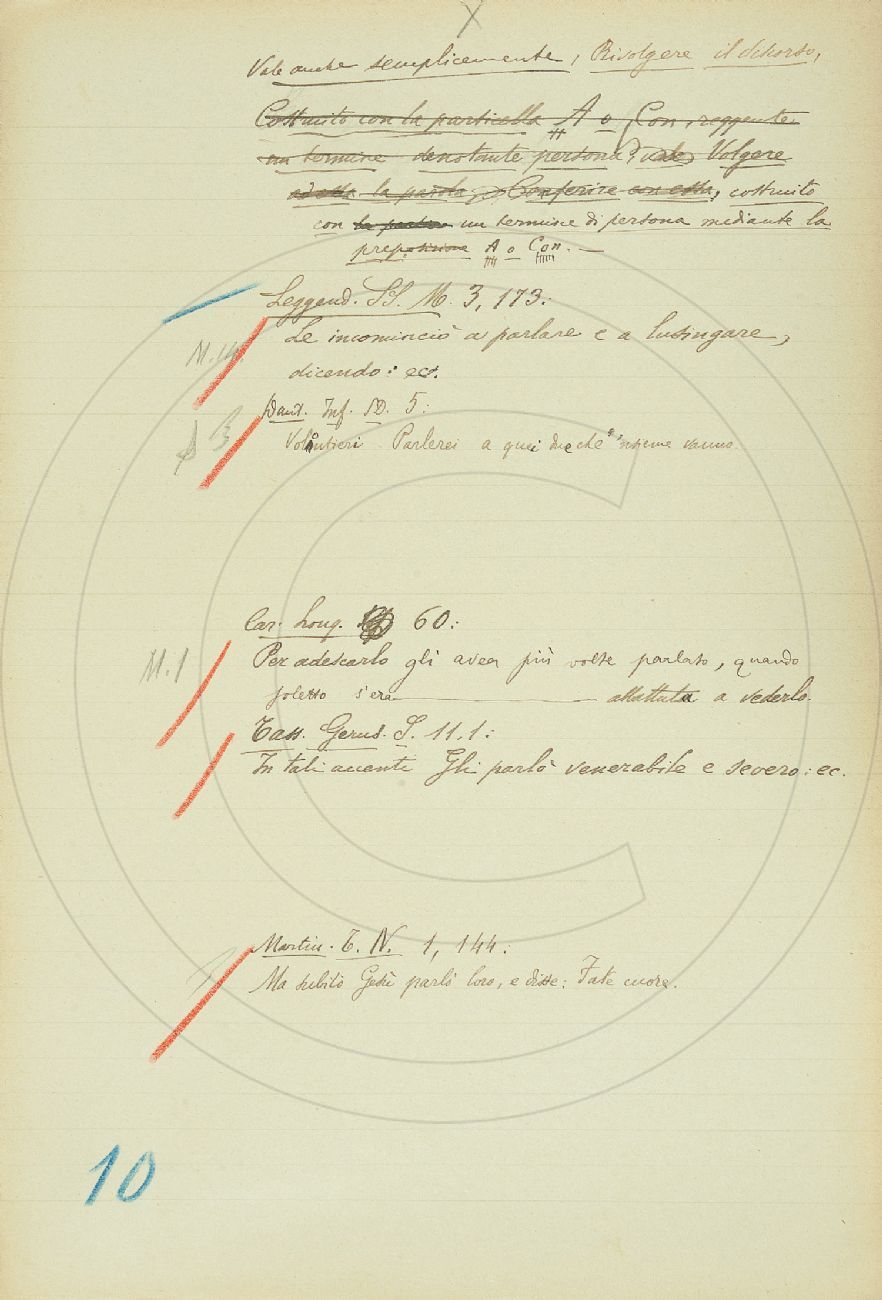 X
Vale anche semplicemente, Rivolgere il discorso,
Costruito con la particella A o Con, reggente
un termine denotante persona, vale Volgere
ad essa la parola, Conferire con essa, costruito
con la un termine di persona mediante la
preposizione A o Con. —
Leggend. SS. M. 3, 173:
Le incominciò a parlare e a lusingare,
M. 14.
dicendo: ec.
Dant. Inf. 5:
Volentieri Parlerei a quei due che 'nsieme vanno.
Car. Long. 60:
Per adescarlo gli avea più volte parlato, quando
M. 1
soletto s'era abbattuta a vederlo.
Tass. Gerus. 11. 1:
In tali accenti Gli parlò venerabile e severo: ec.
Martin. T. N. 1, 144:
Ma subito Gesù parlò loro, e disse: Fate cuore.
10